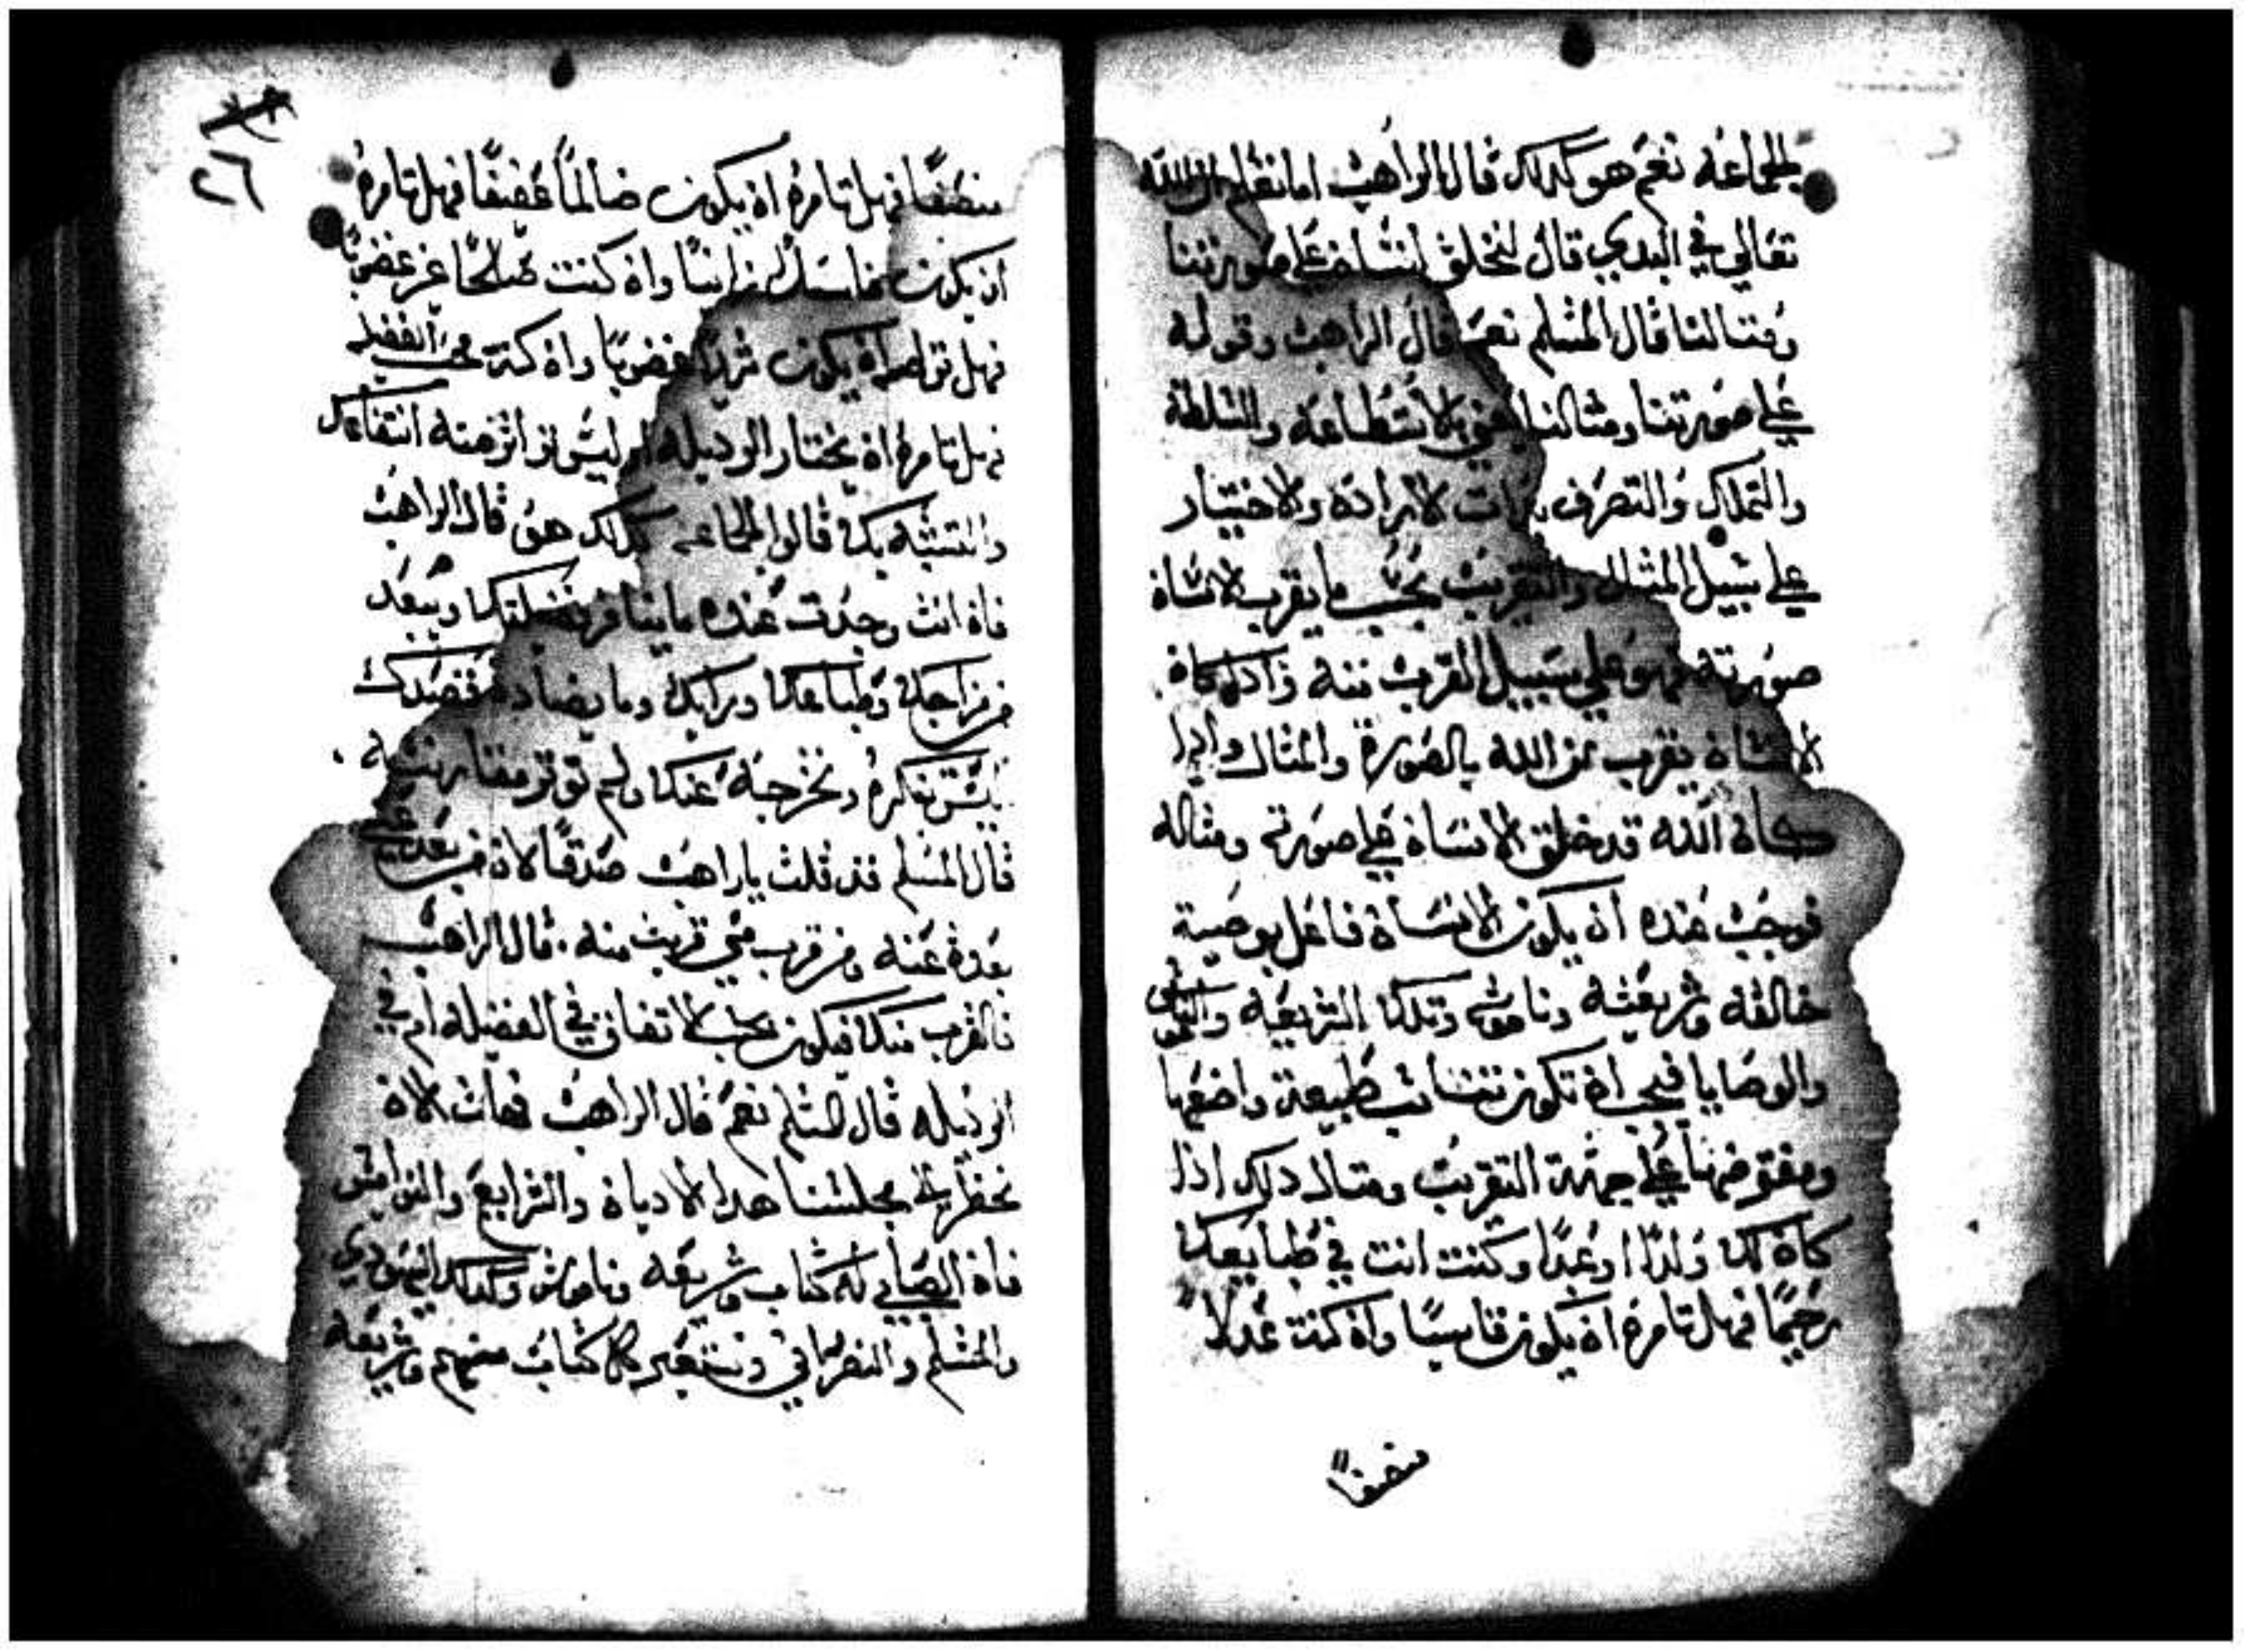 الجماعه نعم هو كدلك قال الراهب اما تعلم ان الله
تعالي في البدي قال لنخلق انسان علي صورتنا
ومتالنا قال المسلم نعم قال الراهب وقوله
علي صورتنا ومتالنا يعني بالاستطاعه والسلطه
والتملك والتصرف الاراده والاختيار
علي سبيل المثال والتقريب بحسب ما يقرب الانسان
صورته فهو علي سبيل القرب منه كان
الانسان يقرب من الله بالصوره والمثال وادا
كان الله قد خلق الانسان علي صورته ومثاله
فوجب عنده ان يكون الانسان فاعل بوصية
خالقه وشريعته وناموسه وتلك الشريعه
والوصايا فيجب ان تكون تتناسب طبيعة واضعها
علي جهة التقريب ومتال دلك ادا
كان لك ولدا او عبدا وكنت انت في طبايعك
رحيما فهل تامره ان يكون قاسيا وان كنت عدلا
منصفا
٢٦
منصفا فهل تامره ان يكون ضالما عفيفا فهل تامره
ان يكون زانيا وان كنت صالحا غير غضوبا
فهل ان يكون غضوبا وان كنت محب الفضيله
فهل تامره ان يختار الرديله منه
والتشبه بك قالوا الجماعه كدلك هو قال الراهب
فان انت وجدت عنده ما ينافر ويبعد
من مزاجك وطباعك ورايك وما يضادد قصدك
تنكره وتخرجه عنك ولم
قال المسلم قد قلت ياراهب صدقا لان من بعد عني
بعدة عنه ومن قرب مني قربت منه . قال الراهب
فالقرب منك فيكون بحسب الاتفاق في الفضيله ام في
الرديله قال المسلم نعم قال الراهب فهات الان
بمجلسنا هدا الاديان والشرايع والنواميس
فان الصابي له كتاب وشريعه وناموس وكدلك اليهودي
والمسلم والنصراني كل كتاب منهم وشريعه